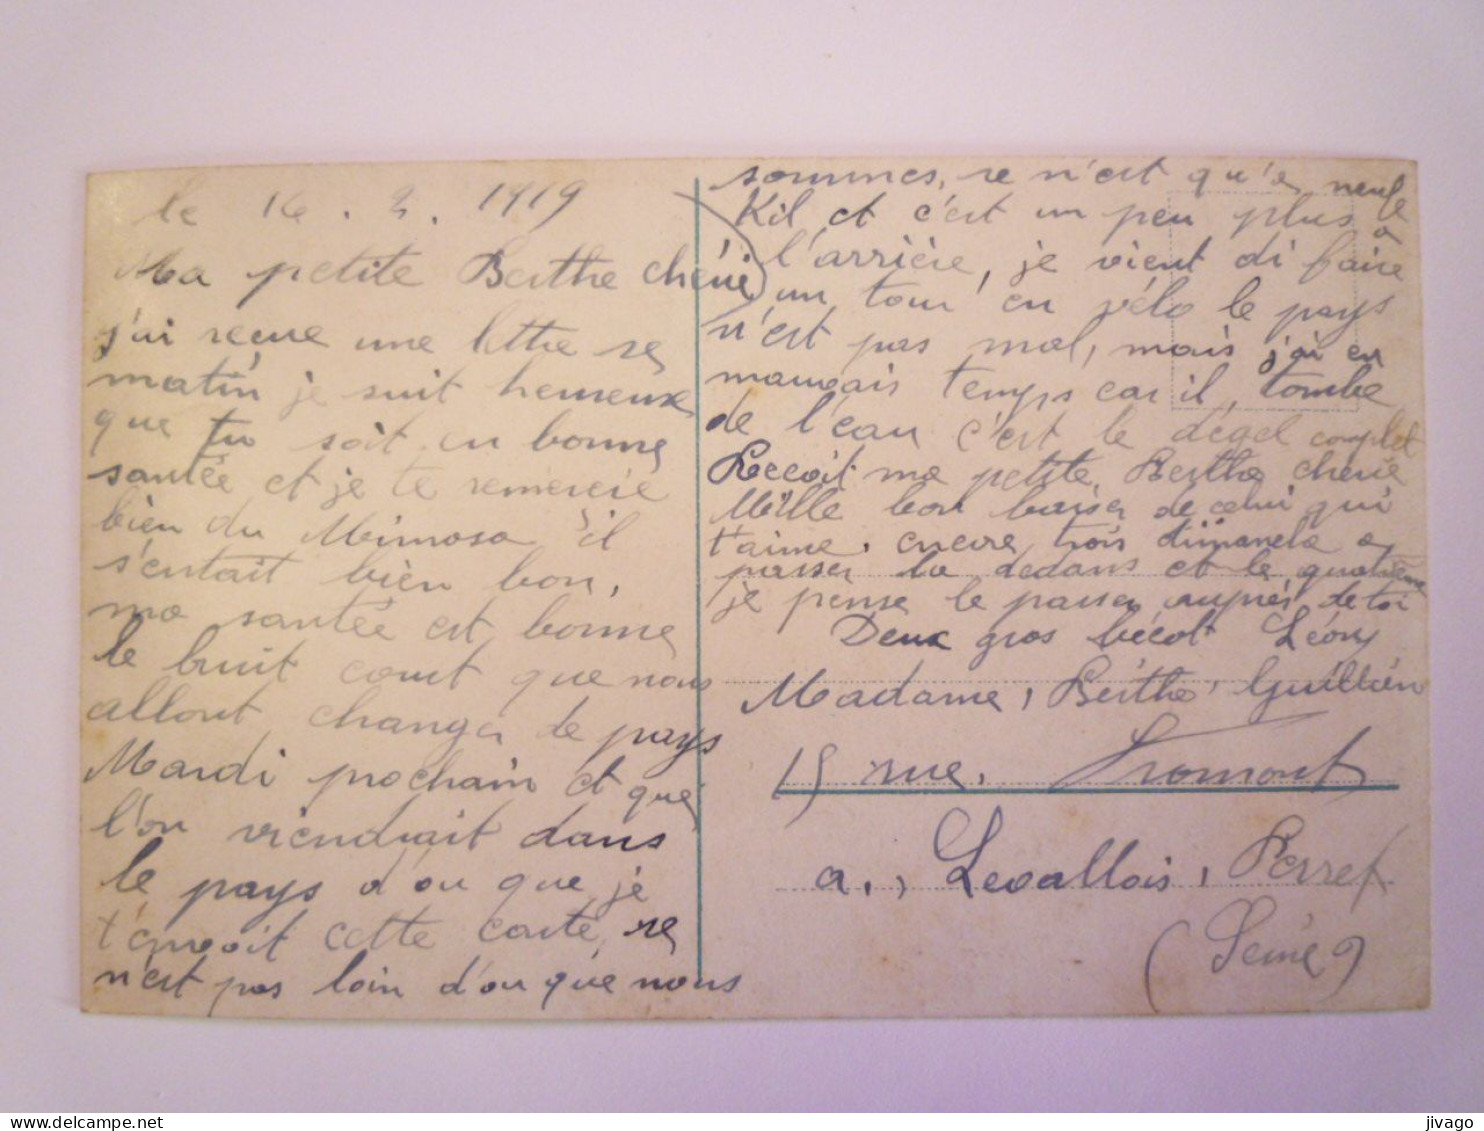 le 16. 2. 1919
Ma petite Berthe chérie
j'ai reçue une lettre se
matin je suit heureux
que tu soit en bonne
santée et je te remercie
bien du Mimosa il
s'entait bien bon,
ma santée est bonne
le bruit court que nous
allont changer de pays
Mardi prochain et que
l'on viendrait dans
le pays d'ou que je
t'envoit cette carte, se
n'est pas loin d'ou que nous
sommes, se n'est qu'a neufe
Kil et c'est un peu plus a
l'arrière, je vient di faire
un tour en vélo le pays
n'est pas mal, mais j'ai eu
mauvais temps car il tombe
de l'eau c'est le dégel complet
Recoit ma petite Berthe cherie
Mille bon baiser de celui qui
t'aime. encore trois dimanche a
passer la dedans et le quatrieme
je pense le passer aupres de toi
Deux gros bécot Léon
Madame, Berthe, Guillien
15 rue. Fromont
a., Levallois, Perret
(Seine)
jivago